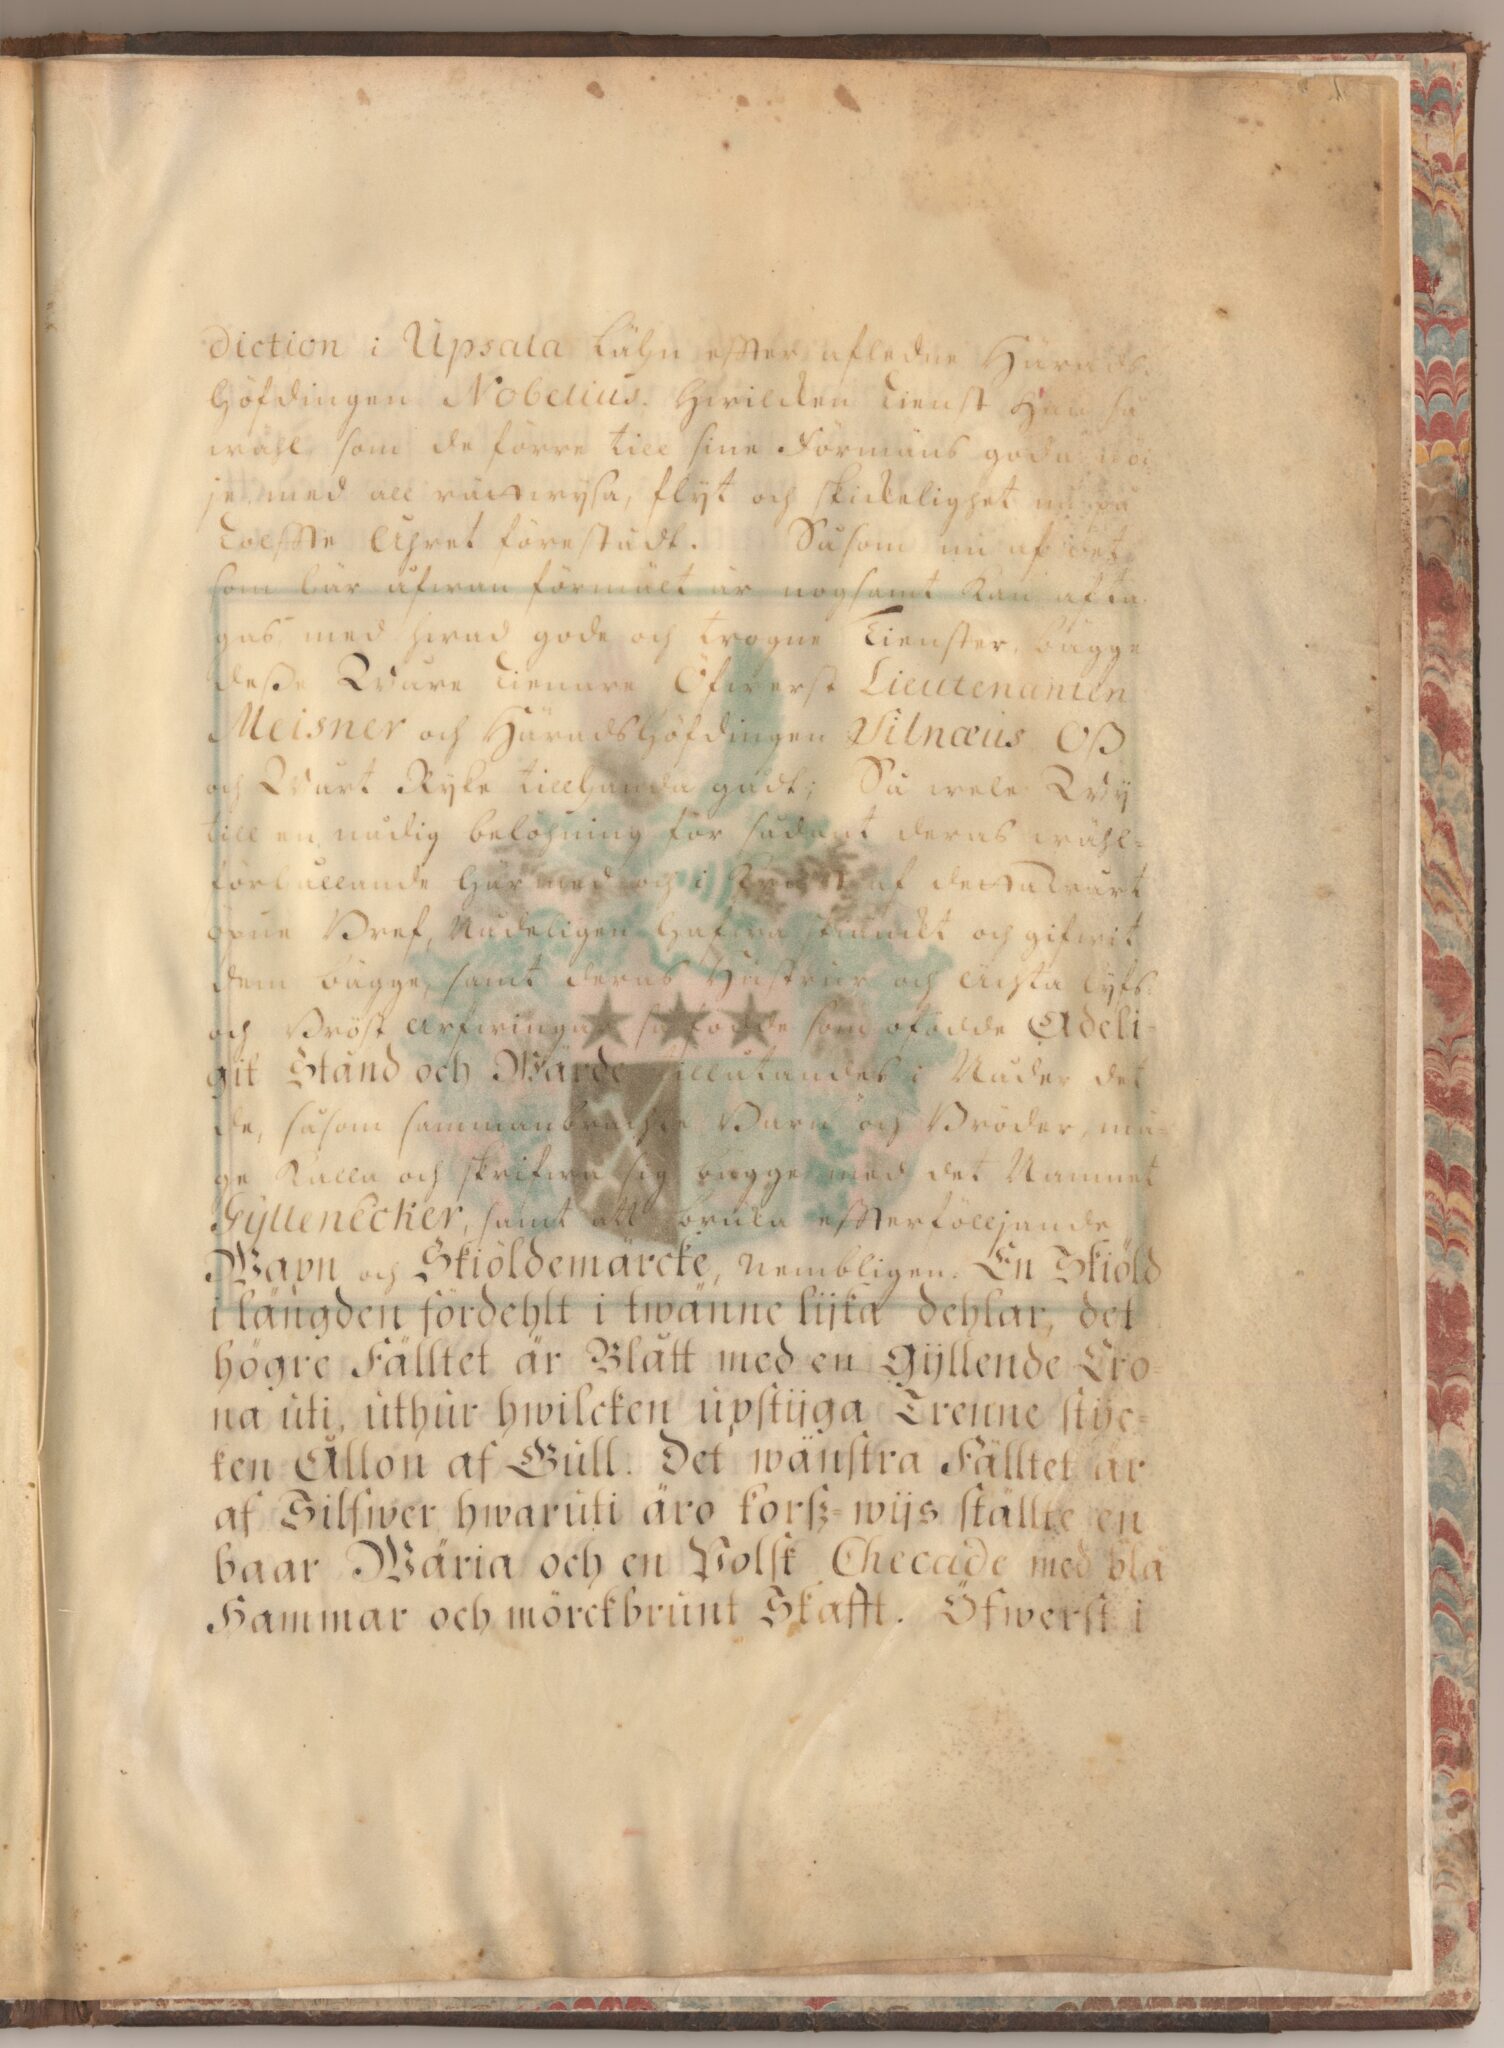 diction i Upsala Lähn effter afledne Häradz-
Höfdingen Nobelius. Hwilcken tienst Han så
wähl som de förre till sine Förmäns goda nöi-
je med all rättwysa, flyt och skickelighet nu på
tolffte Åhret förestådt. Såsom nu af det
som här ofwan förmält är nogsamt kan afta-
gas med hwad gode och trogne Tienster, bägge
desse Wåre tienare Öfwerst Lieutenanten
Meisner och Häradshöfdingen Silnæus Oß
och Wårt Ryke tillhanda gådt; Så wele Wy
till en nådig belöhning för sådant deras wähl-
förhållande härmed och i Krafft af detta Wårt
öpne Bref, Nådeligen hafwa skänckt och gifwit
dem bägge, samt deras Hustrur och Ächta lyfs-
och Bröst arfwingar så födde som ofödde Adeli-
git Stånd och Wärde tillåtandes i Nåder det
de, såsom sammanbrachte Barn och Bröder, må-
ge kalla och skrifwa sig bägge med det Namnet
Gyllenecker, samt att bruka effterfölljande
Wapn och Skiöldemärcke, Nembligen. En Skiöld
i längden fördehlt i twänne lijka dehlar, det
högre Fälltet är Blått med en gÿllende Cro-
na uti, uthur hwilcken upstijga Trenne styc-
ken Ållon af Gull. Det wänstra Fälltet är
af Silfwer hwaruti äro korß-wijs ställte en
baar Wäria och en Polsk Checade med blå
Hammar och mörckbrunt Skafft. Öfwerst i